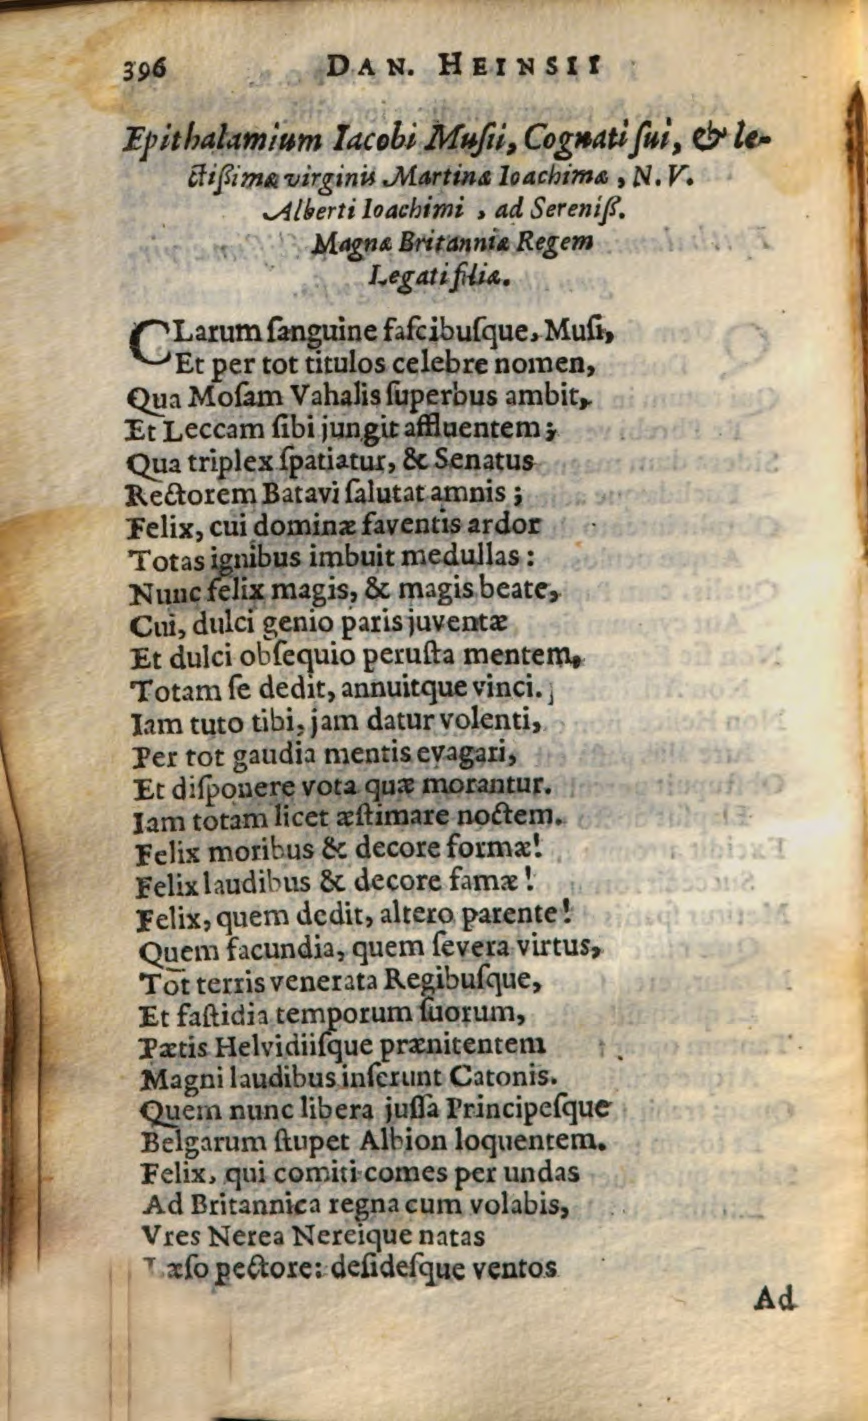 396 DAN. HEINSII
Epithalamium Iacobi Muſii, Cognati ſui, & le-
ctiſſimæ virginis Martinæ Ioachimæ, N. V.
Alberti Ioachimi, ad Sereniſſ.
Magnæ Britanniæ Regem
Legati filiæ.
CLarum ſanguine faſcibuſque, Muſi,
Et per tot titulos celebre nomen,
Qua Moſam Vahalis ſuperbus ambit,
Et Leccam ſibi jungit affluentem;
Qua triplex ſpatiatur, & Senatus
Rectorem Batavi ſalutat amnis;
Felix, cui dominæ faventis ardor
Totas ignibus imbuit medullas:
Nunc felix magis, & magis beate,
Cui, dulci genio paris juventæ
Et dulci obſequio peruſta mentem,
Totam ſe dedit, annuitque vinci.
Iam tuto tibi, jam datur volenti,
Per tot gaudia mentis evagari,
Et diſponere vota quæ morantur.
Iam totam licet æſtimare noctem.
Felix moribus & decore formæ!
Felix laudibus & decore famæ!
Felix, quem dedit, altero parente!
Quem facundia, quem ſevera virtus,
Tot terris venerata Regibuſque,
Et faſtidia temporum ſuorum,
Pætis Helvidiiſque prænitentem
Magni laudibus inſerunt Catonis.
Quem nunc libera juſſa Principeſque
Belgarum ſtupet Albion loquentem.
Felix, qui comiti comes per undas
Ad Britannica regna cum volabis,
Vres Nerea Nereique natas
Læſo pectore: deſideſque ventos
Ad